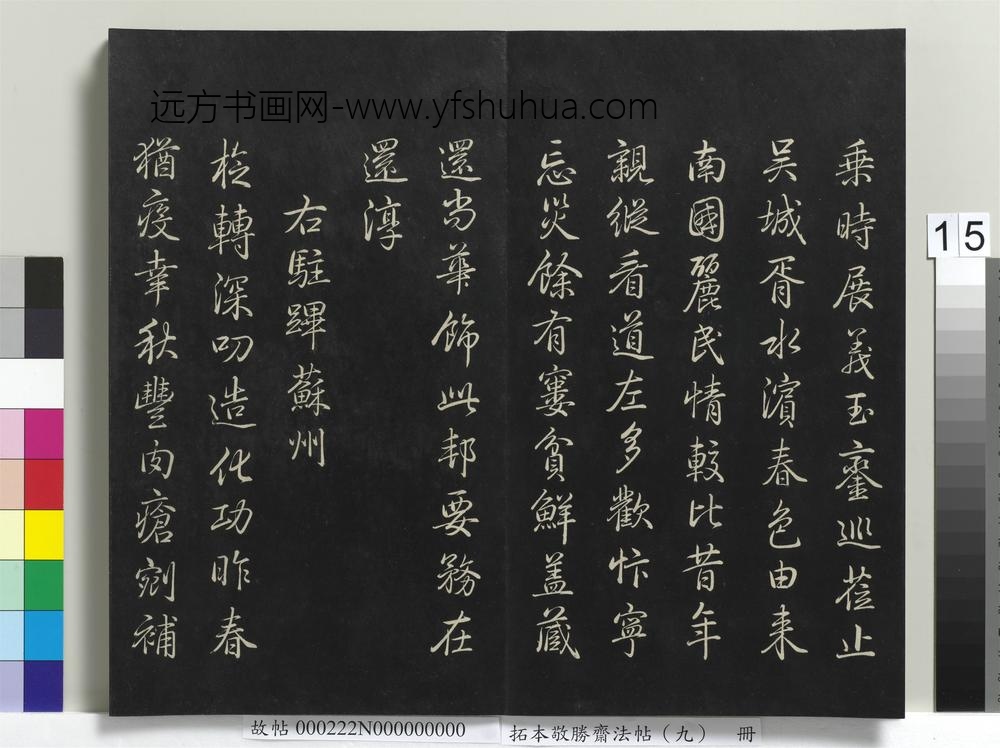 远方书画网-www.yfshuhua.com
乘時展義玉鑾巡蒞止
吴城胥水濱春色由来
南國麗民情較比昔年
親縱看道左多歡忭寧
忘災餘有窶貧鮮盖蔵
還尚華飾此邦要務在
還淳
右駐蹕蘇州
柁轉深叨造化功昨春
猶疫幸秋豐肉瘡剜補
15
故帖 000222N000000000
拓本敬勝齋法帖（九） 冊